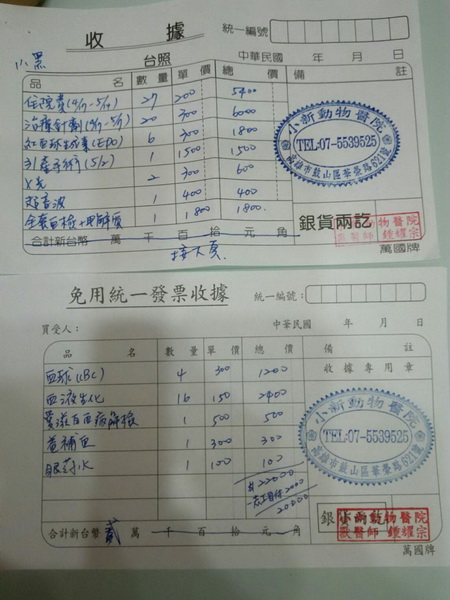 收據
統一編號
小黑
台照
中華民國 年 月 日
品名 數量 單價 總價 備註
住院費(4/17-5/14) 27 200 5400
治療針劑 20 300 6000
紅血球生成素(EPO) 6 300 1800
引產手術(5/2) 1 1500 1500
X光 2 300 600
超音波 1 400 400
全套血檢 1 1800 1800
小新動物醫院
TEL:07-5539525
高雄市鼓山區
銀貨兩訖
動物醫院
獸醫師 鍾耀宗
合計新台幣 萬 千 百 拾 元 角
接下頁
萬國牌
免用統一發票收據
統一編號:
買受人:
中華民國 年 月 日
品名 數量 單價 總價 備註
收據專用章
血球(CBC) 4 300 1200
血液生化 16 150 2400
1 500 500
1 300 300
眼封水 1 100 100
22000
2000
20000
小新動物醫院
TEL:07-5539525
高雄市鼓山區
小雨動物醫院
獸醫師 鍾耀宗
合計新台幣 貳 萬 千 百 拾 元 角
萬國牌